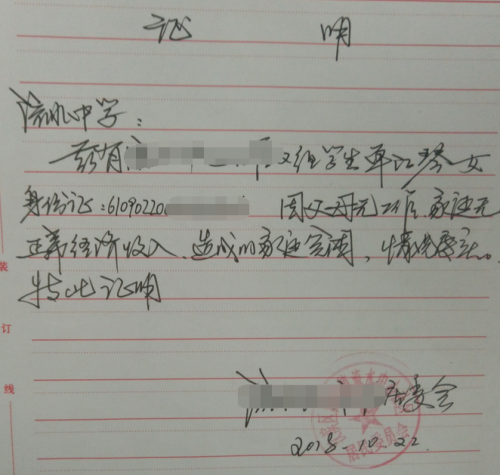 证 明
中学：
兹有 组学生 江琴 女
身份证：61090220 因父母无工作，家庭无
正常经济收入，造成的家庭贫困，情况属实。
特此证明
居委会
2018-10-22
装
订
线